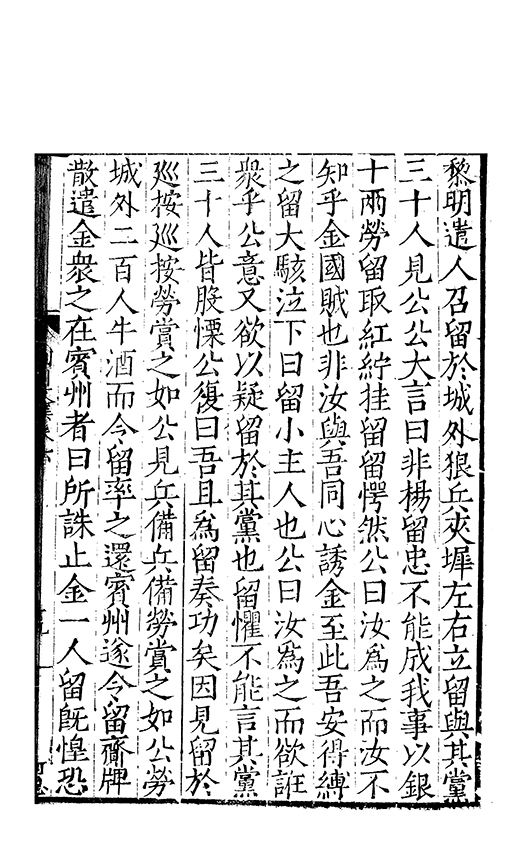 黎明遣人召留於城外狼兵夾墀左右立留與其黨
三十人見公公大言曰非楊留忠不能成我事以銀
十兩勞留取紅紵挂留留愕然公曰汝為之而汝不
知乎金國賊也非汝與吾同心誘金至此吾安得縛
之留大駭泣下曰留小主人也公曰汝為之而欲誑
衆乎公意又欲以疑留於其黨也留懼不能言其黨
三十人皆股慄公復曰吾且為留奏功矣因見留於
廵按廵按勞賞之如公見兵備兵備勞賞之如公勞
城外二百人牛酒而令留率之還賓州遂令留齎牌
散遣金衆之在賓州者曰所誅止金一人留旣惶恐